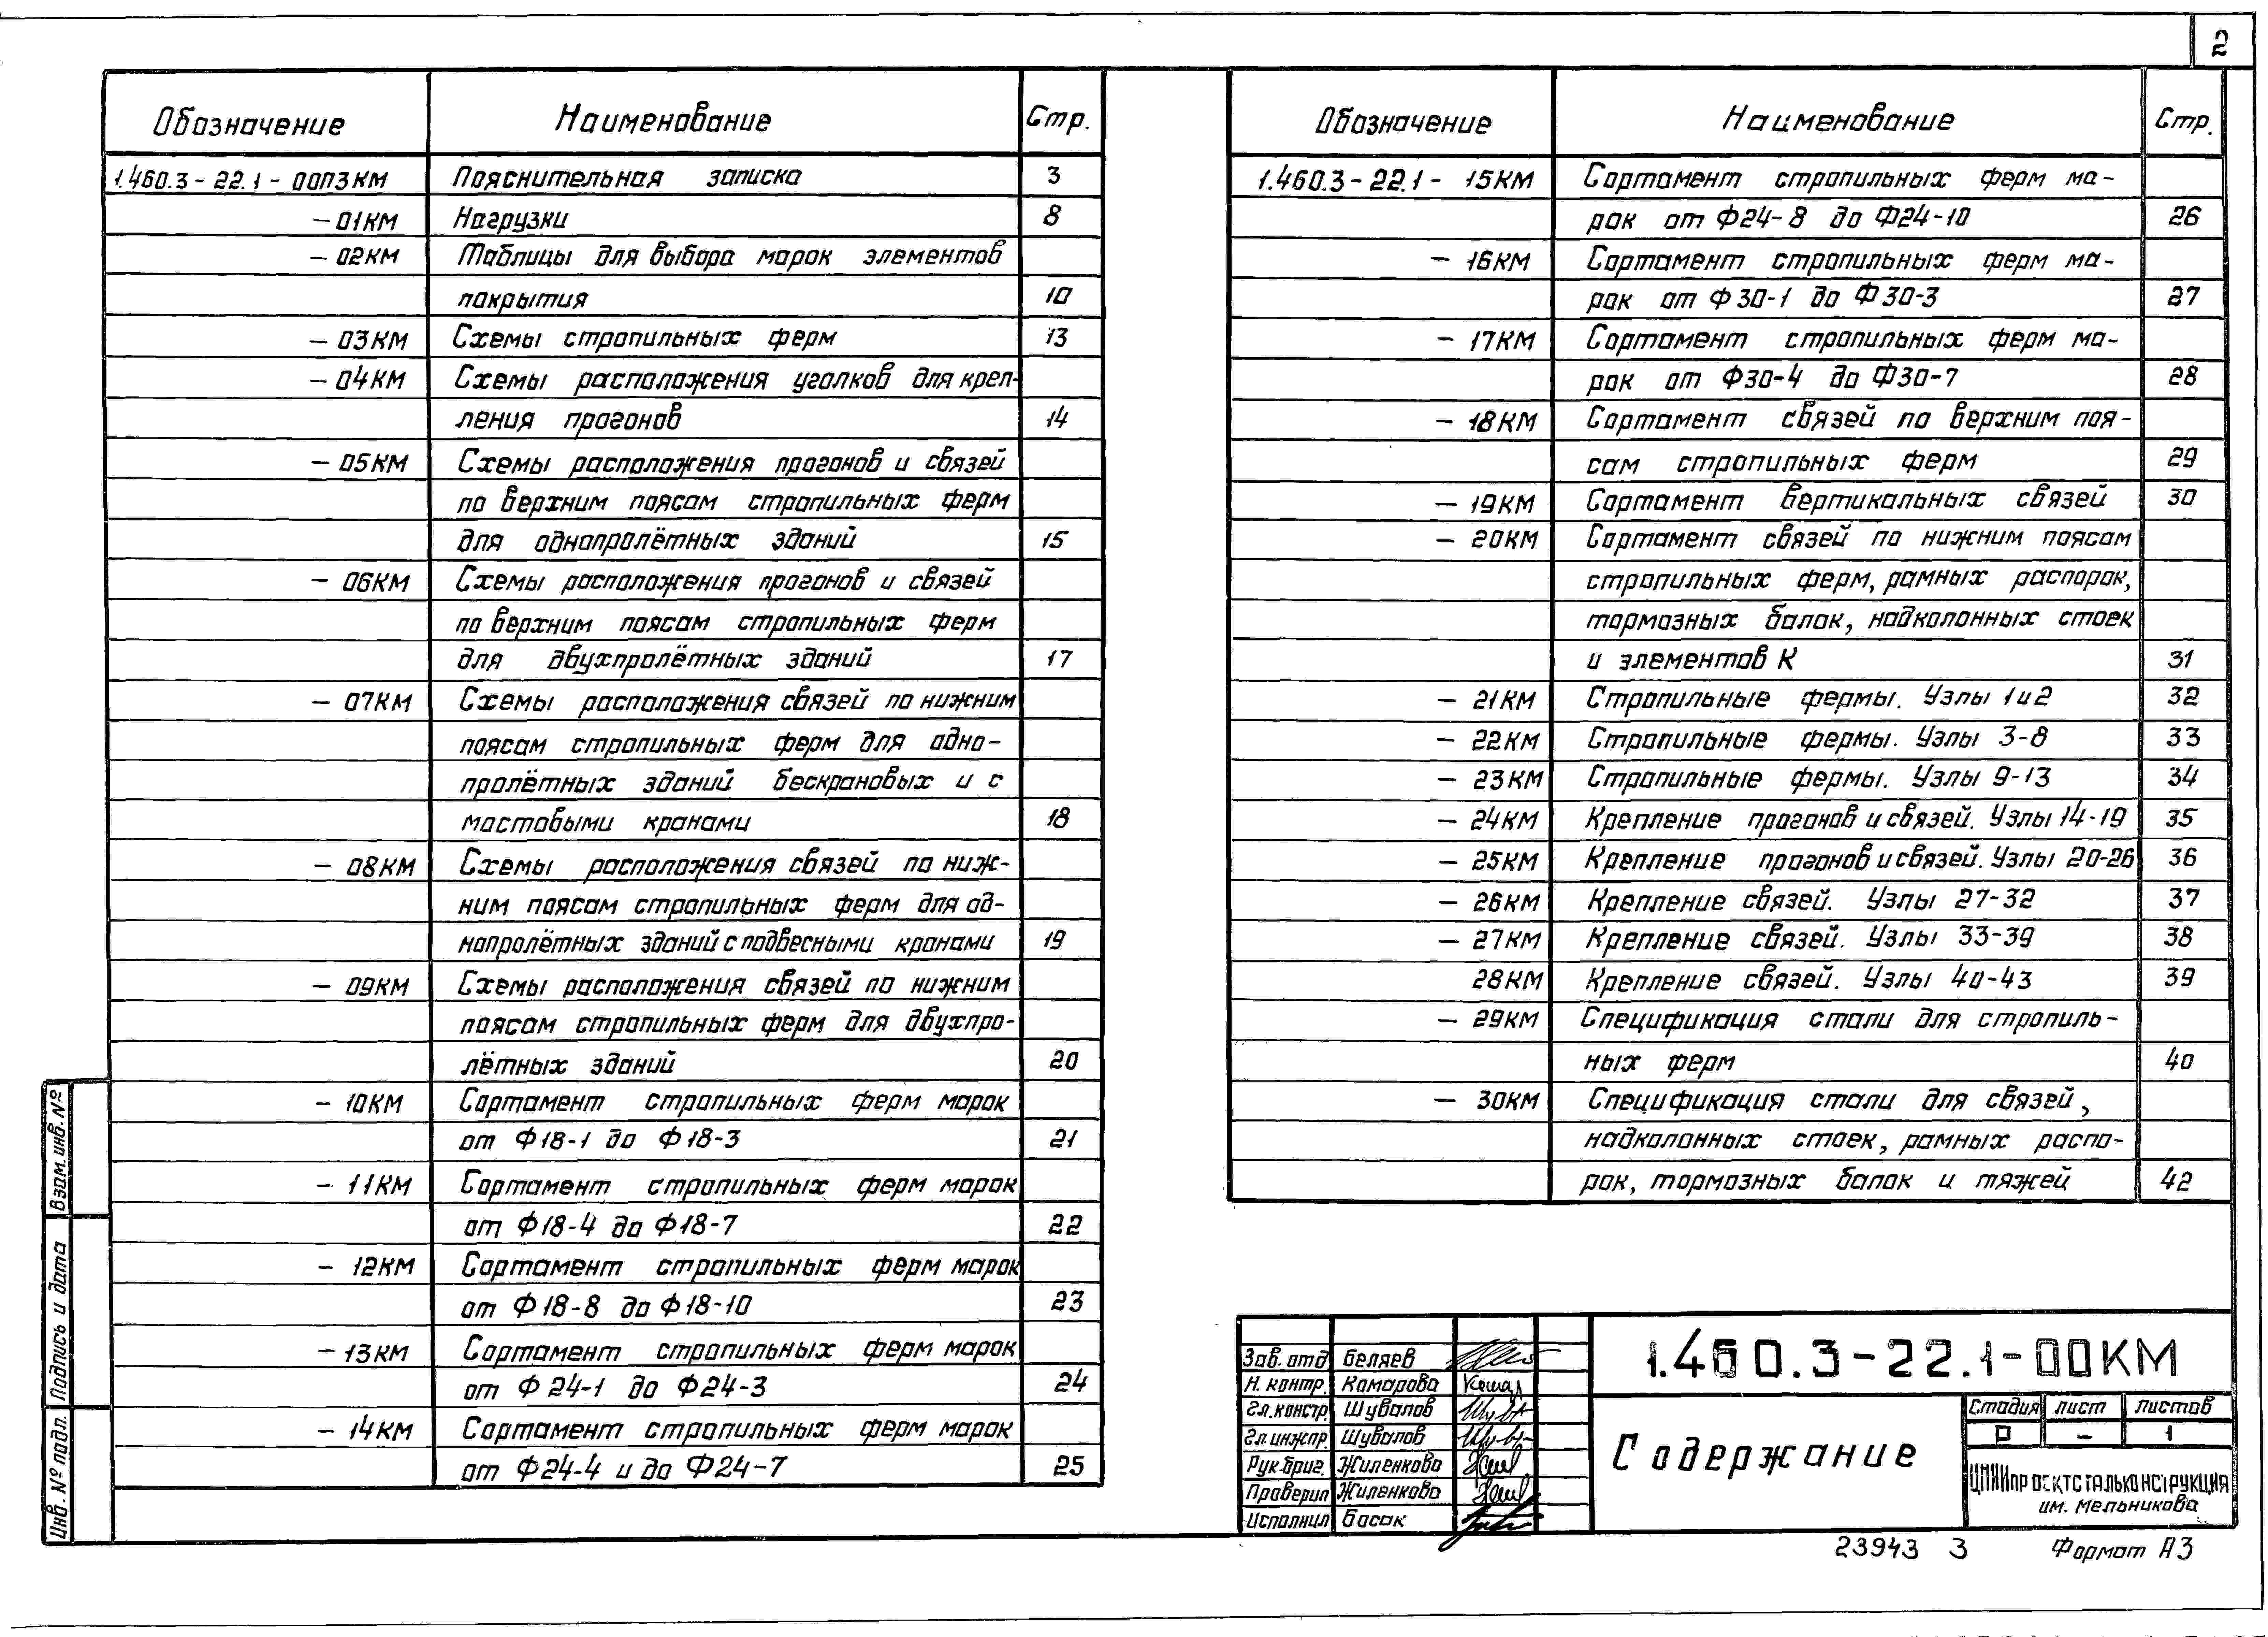 2
Обозначение Наименование Стр.
1.460.3-22.1-00ПЗКМ Пояснительная записка 3
-01КМ Нагрузки 8
-02КМ Таблицы для выбора марок элементов
покрытия 10
-03КМ Схемы стропильных ферм 13
-04КМ Схемы расположения уголков для креп-
ления прогонов 14
-05КМ Схемы расположения прогонов и связей
по верхним поясам стропильных ферм
для однопролётных зданий 15
-06КМ Схемы расположения прогонов и связей
по верхним поясам стропильных ферм
для двухпролётных зданий 17
-07КМ Схемы расположения связей по нижним
поясам стропильных ферм для одно-
пролётных зданий бескрановых и с
мостовыми кранами 18
-08КМ Схемы расположения связей по ниж-
ним поясам стропильных ферм для од-
нопролётных зданий с подвесными кранами 19
-09КМ Схемы расположения связей по нижним
поясам стропильных ферм для двухпро-
лётных зданий 20
-10КМ Сортамент стропильных ферм марок
от Ф18-1 до Ф18-3 21
-11КМ Сортамент стропильных ферм марок
от Ф18-4 до Ф18-7 22
-12КМ Сортамент стропильных ферм марок
от Ф18-8 до Ф18-10 23
-13КМ Сортамент стропильных ферм марок
от Ф24-1 до Ф24-3 24
-14КМ Сортамент стропильных ферм марок
от Ф24-4 и до Ф24-7 25
Обозначение Наименование Стр.
1.460.3-22.1- 15КМ Сортамент стропильных ферм ма-
рок от Ф24-8 до Ф24-10 26
-16КМ Сортамент стропильных ферм ма-
рок от Ф30-1 до Ф30-3 27
-17КМ Сортамент стропильных ферм ма-
рок от Ф30-4 до Ф30-7 28
-18КМ Сортамент связей по верхним поя-
сам стропильных ферм 29
-19КМ Сортамент вертикальных связей 30
-20КМ Сортамент связей по нижним поясам
стропильных ферм, рамных распорок,
тормозных балок, надколонных стоек
и элементов К 31
-21КМ Стропильные фермы. Узлы 1и2 32
-22КМ Стропильные фермы. Узлы 3-8 33
-23КМ Стропильные фермы. Узлы 9-13 34
-24КМ Крепление прогонов и связей. Узлы 14-19 35
-25КМ Крепление прогонов и связей. Узлы 20-26 36
-26КМ Крепление связей. Узлы 27-32 37
-27КМ Крепление связей. Узлы 33-39 38
28КМ Крепление связей. Узлы 40-43 39
-29КМ Спецификация стали для стропиль-
ных ферм 40
-30КМ Спецификация стали для связей,
надколонных стоек, рамных распо-
рок, тормозных балок и тяжей 42
Взам. инв. №
Подпись и дата
Инв. № подл.
Зав. отд Беляев
Н. контр. Комарова
Гл. констр. Шувалов
Гл. инж.пр. Шувалов
Рук. бриг. Жиленкова
Проверил Жиленкова
Исполнил Басок
1.460.3-22.1-00КМ
Содержание
Стадия лист листов
Р - 1
ЦНИИпроектстальконструкция
им. Мельникова
23943 3 Формат А3